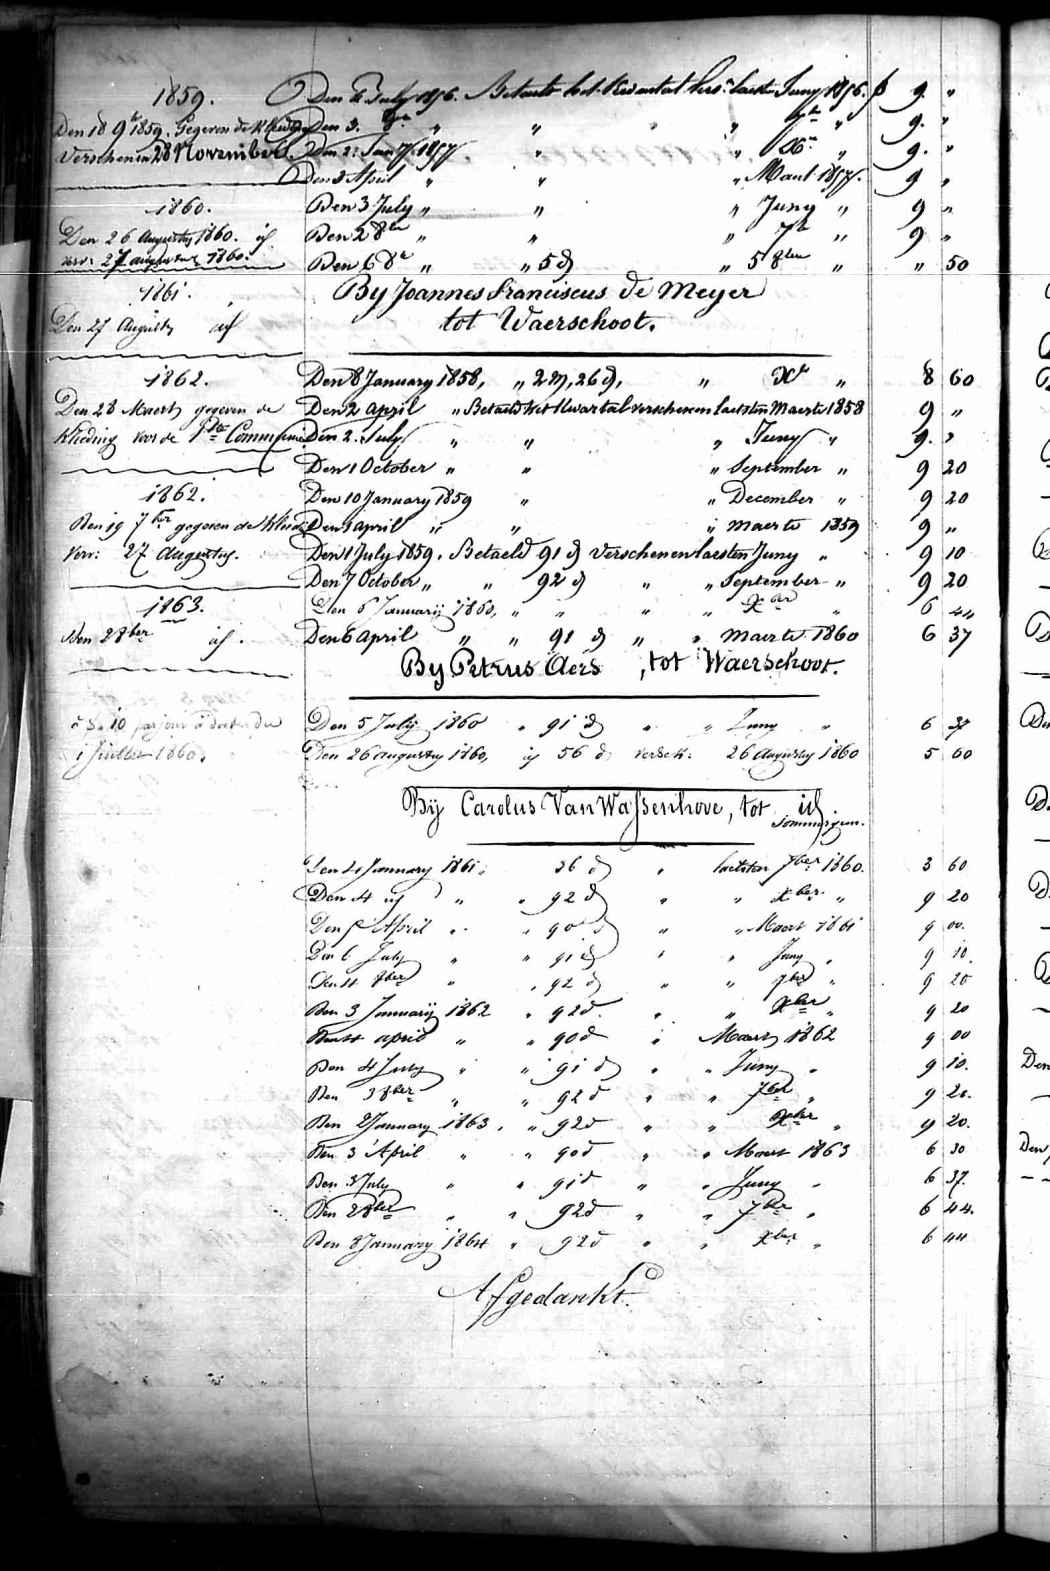 1859.
Den 18 9br 1859. Gegeven de Kleeding
Verschenen 28 November.
1860.
Den 26 Augusty 1860. if
verv: 27 augusty 1860.
1861.
Den 27 Augusty if
1862.
Den 28 Maert gegeven de
Kleeding voor de 1ste Communie
1862.
Den 19 7ber gegeven de Kleed
Verv: 27 Augustus.
1863.
Den 28ber if.
1 Juillet 1860.
Den July 1856. Betaelt het Kwartael vers: laest Juny 1856. f 9. "
Den 3. 8br " " " " 7br " 9. "
Den 2: Jan 7. 1857 " " Xr " 9. "
Den 3 April " " " Maert 1857. 9 "
Den 3 July " " " Juny " 9 "
Den 2 8br " " " 7br " 9 "
Den 6 8r " " 5 d " 5 8ber " " 50
By Joannes Franciscus De Meyer
tot Waerschoot.
Den 8 January 1858, " 2 m, 26 d, " Xr " 8 60
Den 2 april " Betaeld het Kwartal verschenen laesten Maerte 1858 9 "
Den 2. July " " " Juny " 9. "
Den 1 October " " " September " 9 20
Den 10 January 1859 " " December " 9 20
Den 1 april " " " maerte 1859 9 "
Den 1 July 1859. Betaeld 91 d verschenen laesten Juny " 9 10
Den 7 October " " 92 d " " September " 9 20
Den 6 Januarij 1860, " " " " Xber " 6 44
Den 6 April " " 91 d " " maerte 1860 6 37
By Petrus Aers , tot Waerschoot.
Den 5 July 1860 " 91 d " " Juny " 6 37
Den 26 augusty 1860, ij 56 d versch: 26 Augusty 1860 5 60
Bij Carolus Van Wassenhove, tot id
Den 4 January 1861, 36 d " laetsten 7ber 1860. 3 60
Den 4 id " " 92 d " " Xber " 9 20
Den 5 April " " 90 d " " Maert 1861 9 00.
Den 6 July " " 91 d " " Juny " 9 10.
Den 4 8ber " " 92 d " " 7ber " 9 20
Den 3 Januarij 1862 " 92 d. " " Xber " 9 20
Den 4 april " " 90 d " Maert 1862 9 00
Den 4 July " " 91 d " " Juny " 9 10.
Den 3 8ber " " 92 d " " 7ber " 9 20.
Den 2 January 1863. " 92 d " " Xber " 9 20.
Den 3 April " " 90 d " " Maert 1863 6 30
Den 3 July " " 91 d " " Juny " 6 37.
Den 2 8ber " " 92 d " " 7ber " 6 44.
Den 8 January 1864 " 92 d " " Xber " 6 44
Afgedankt.